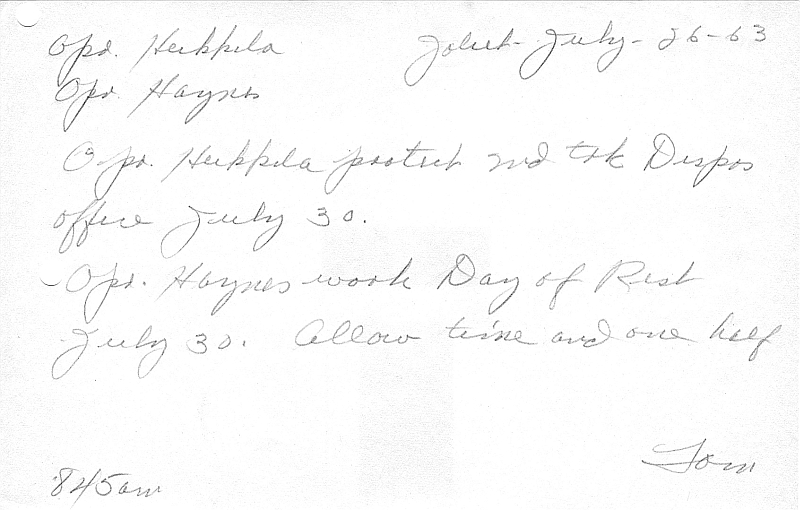 Opr. Heikkila Joliet - July - 26 - 63
Opr. Haynes
Opr. Heikkila protect 2nd trk Dispos
office July 30.
Opr. Haynes work Day of Rest
July 30. Allow time and one half
Tom
845am